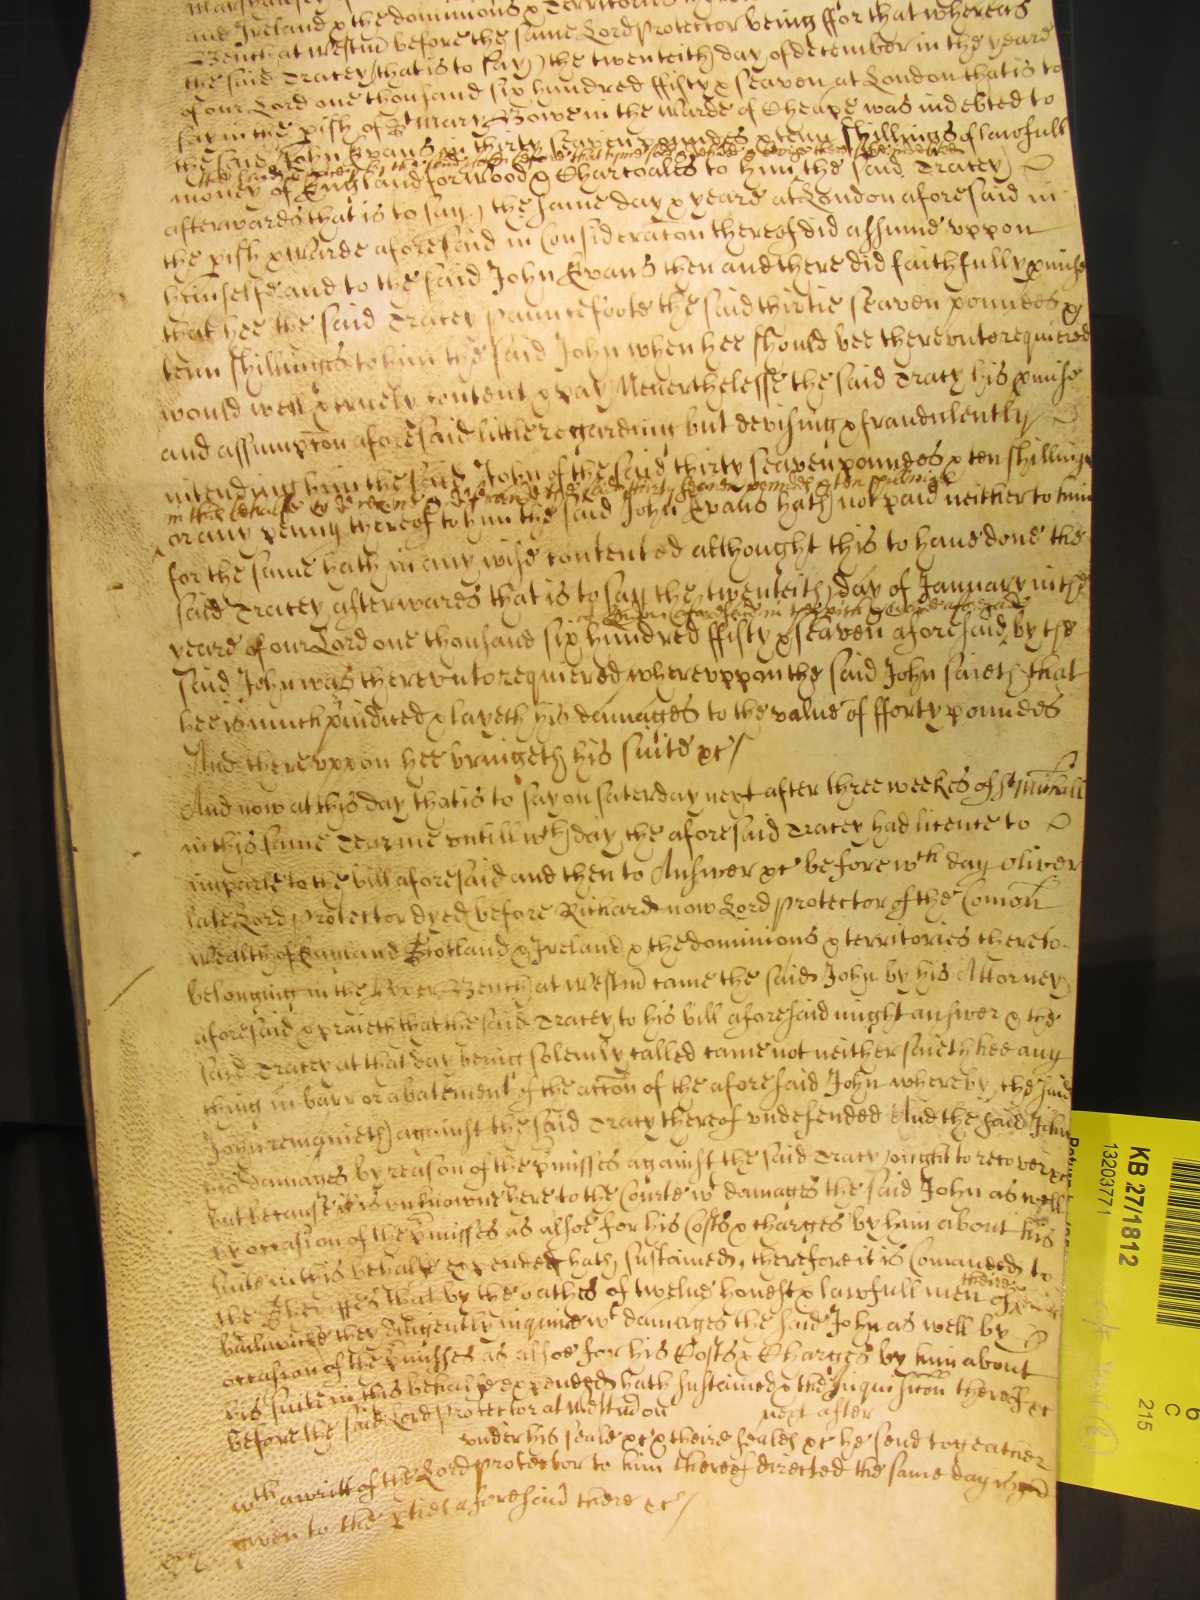 and Ireland & the dominions & Territories
Bench at Westm before the same Lord Protector being ffor that whereas
the said Tracey (that is to say) the twenteith day of december in the yeare
of our Lord one thousand six hundred ffifty & seaven at London that is to
say in the pish of St Mary Bowe in the Warde of Cheape was indebted to
the said John Evans in thirty seaven poundes & tenn shillings of lawfull
money of England for wood & Charcoales to him the said Tracey
afterwards that is to say, the same day & yeare at London aforesaid in
the pish & Warde aforesaid in Consideracon thereof did assume uppon
himselfe and to the said John Evans then and there did faithfully pmise
that hee the said Tracey Pauncefoote the said thirtie seaven poundes &
tenn shillings to him the said John when hee should bee thereunto requiered
would well & truely content & pay Neverthelesse the said Tracy his pmise
and assumpcon aforesaid little regarding but devising & fraudulently
intending him the said John of the said thirty seaven poundes & ten shillings
in this behalfe to deceive & defraude the said thirty seaven poundes & ten shillings
or any penny thereof to him the said John Evans hath not paid neither to him
for the same hath in any wise contented althought this to have done the
said Tracey afterwards that is to say the twenteith day of January in the
at London aforesaid in the pish & warde aforesaid
yeare of our Lord one thousand six hundred ffifty & seaven aforesaid by the
said John was thereunto requiered whereuppon the said John saieth that
hee is much piudiced & layeth his damages to the value of fforty poundes
And thereuppon hee bringeth his suite &c/
And now at this day that is to say on Saterday next after three weekes of St Michall
in this same Tearme untill wch day the aforesaid Tracey had licence to
imparle to the bill aforesaid and then to Answer &c before wch day Oliver
late Lord Protector dyed before Richard now Lord Protector of the Comon
Wealth of England Scotland & Ireland & the dominions & territories thereto
belonging in the Upper Bench at Westm came the said John by his Attorney
aforesaid & praieth that the said Tracey to his bill aforesaid might answer & the
said Tracey at that day being solemly called came not neither saieth hee any
thing in barr or abatement of the accon of the aforesaid John whereby the said
John remayneth against the said Tracy thereof undefended And the said John
his damages by reason of the pmisses against the said Tracy ought to recover &c
but because it is unknowne here to the Courte wt damages the said John as well
by occasion of the pmisses as alsoe for his Costs & charges by him about his
suite in this behalfe expended hath sustained, therefore it is Comanded to
the Sheriffes that by the oathes of twelve honest & lawfull men of theire
bailiwicke they diligently inquire wt damages the said John as well by
occasion of the pmisses as alsoe for his Costs & Charges by him about
his suite in this behalfe expended hath sustained & the Inquisicon thereof &c
before the said Lord Protector at Westm on next after
under his seale &c & theire seales &c he send togeather
wth a writt of the Lord Protector to him thereof directed the same day is
given to the pties aforesaid there &c/
KB 27/1812
1320377 1
C
215